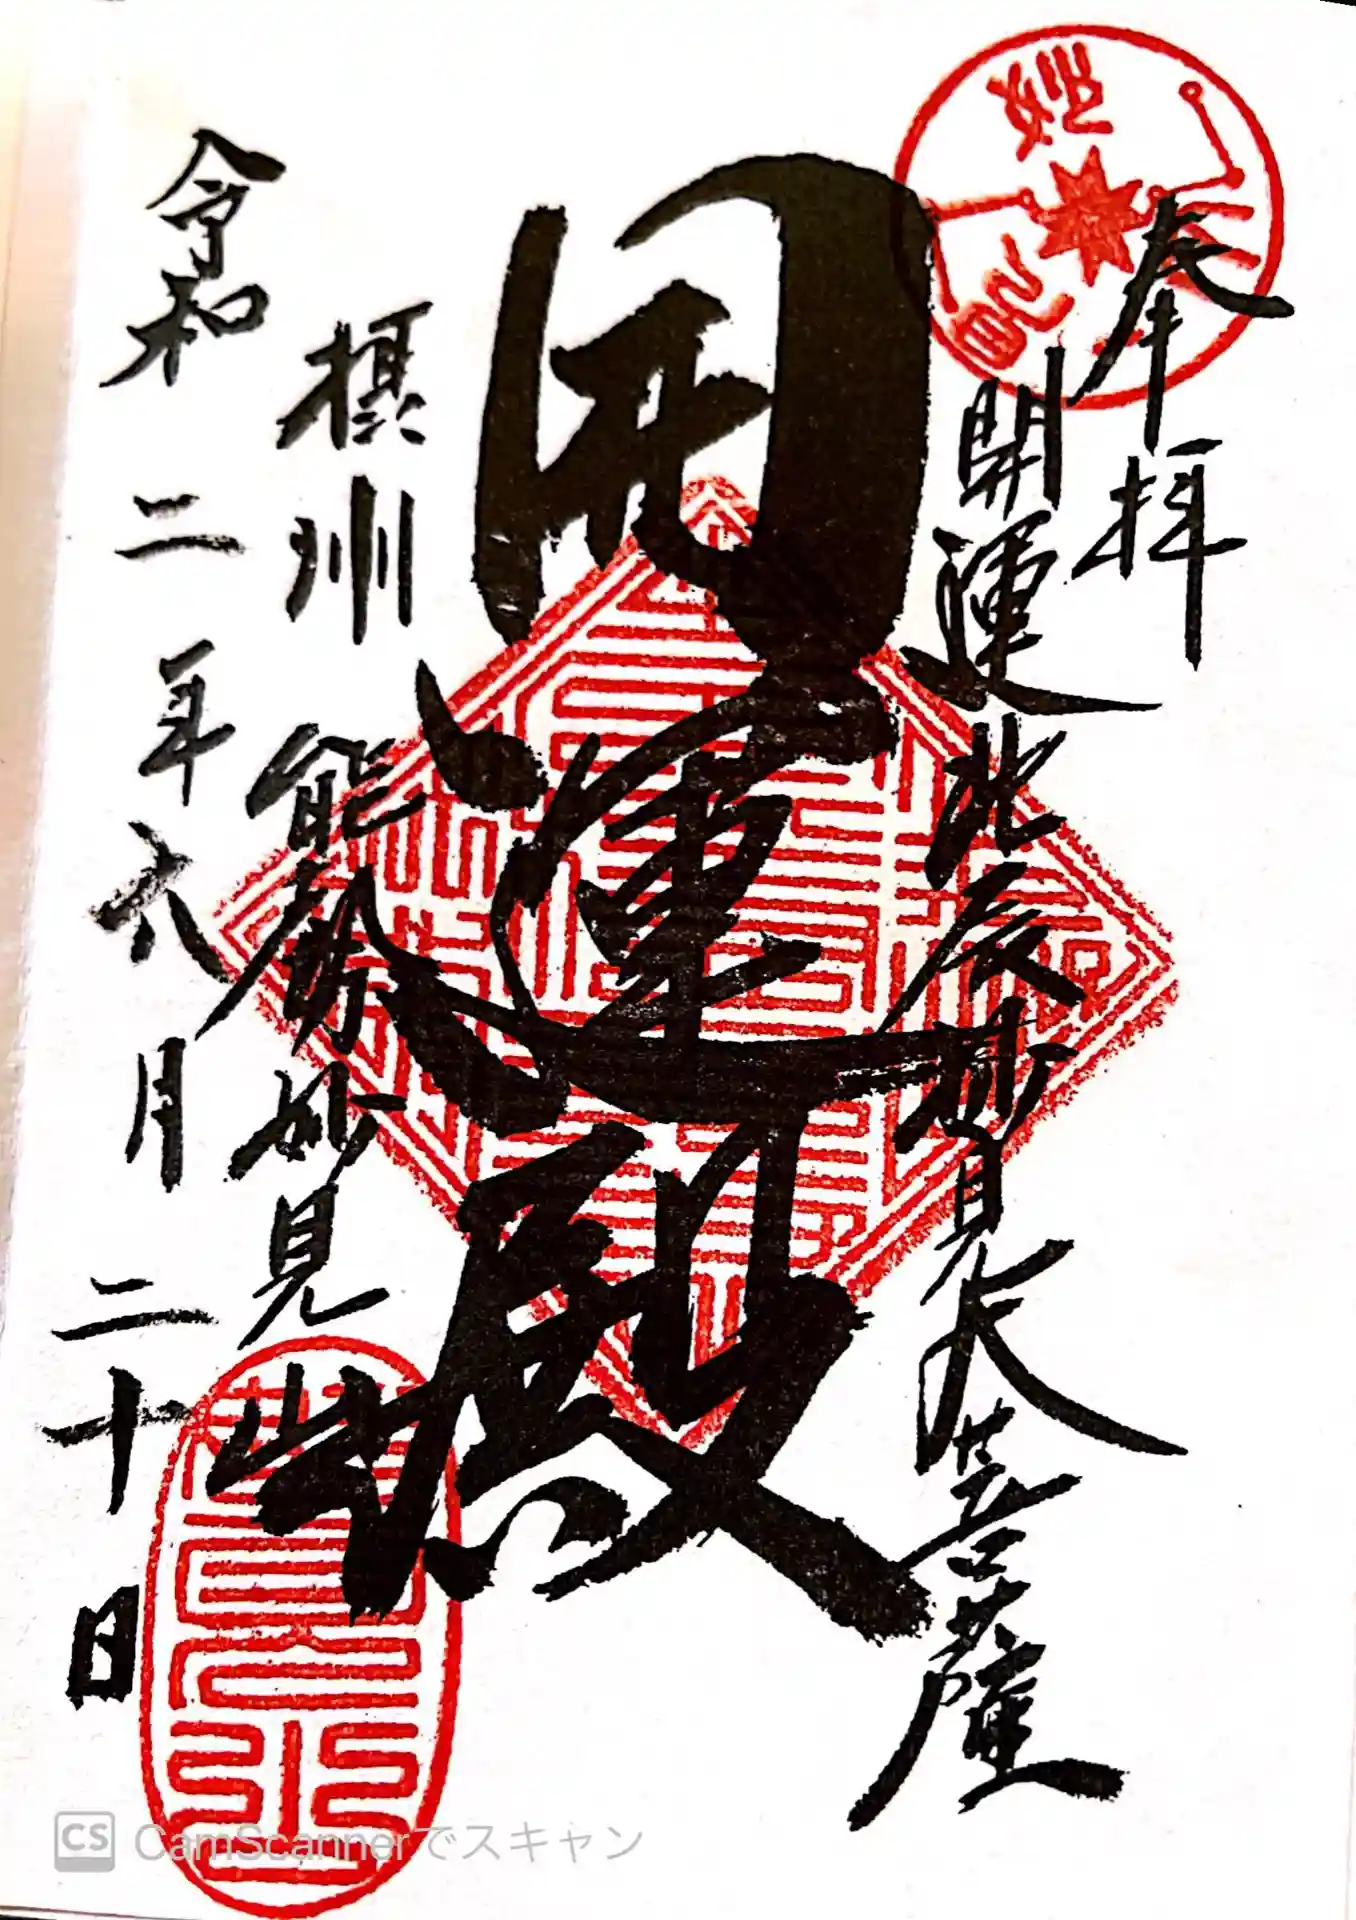 奉拝
開運北辰妙見大菩薩
開運殿
摂州
能勢妙見山
令和二年六月二十日
妙見
CS CamScannerでスキャン